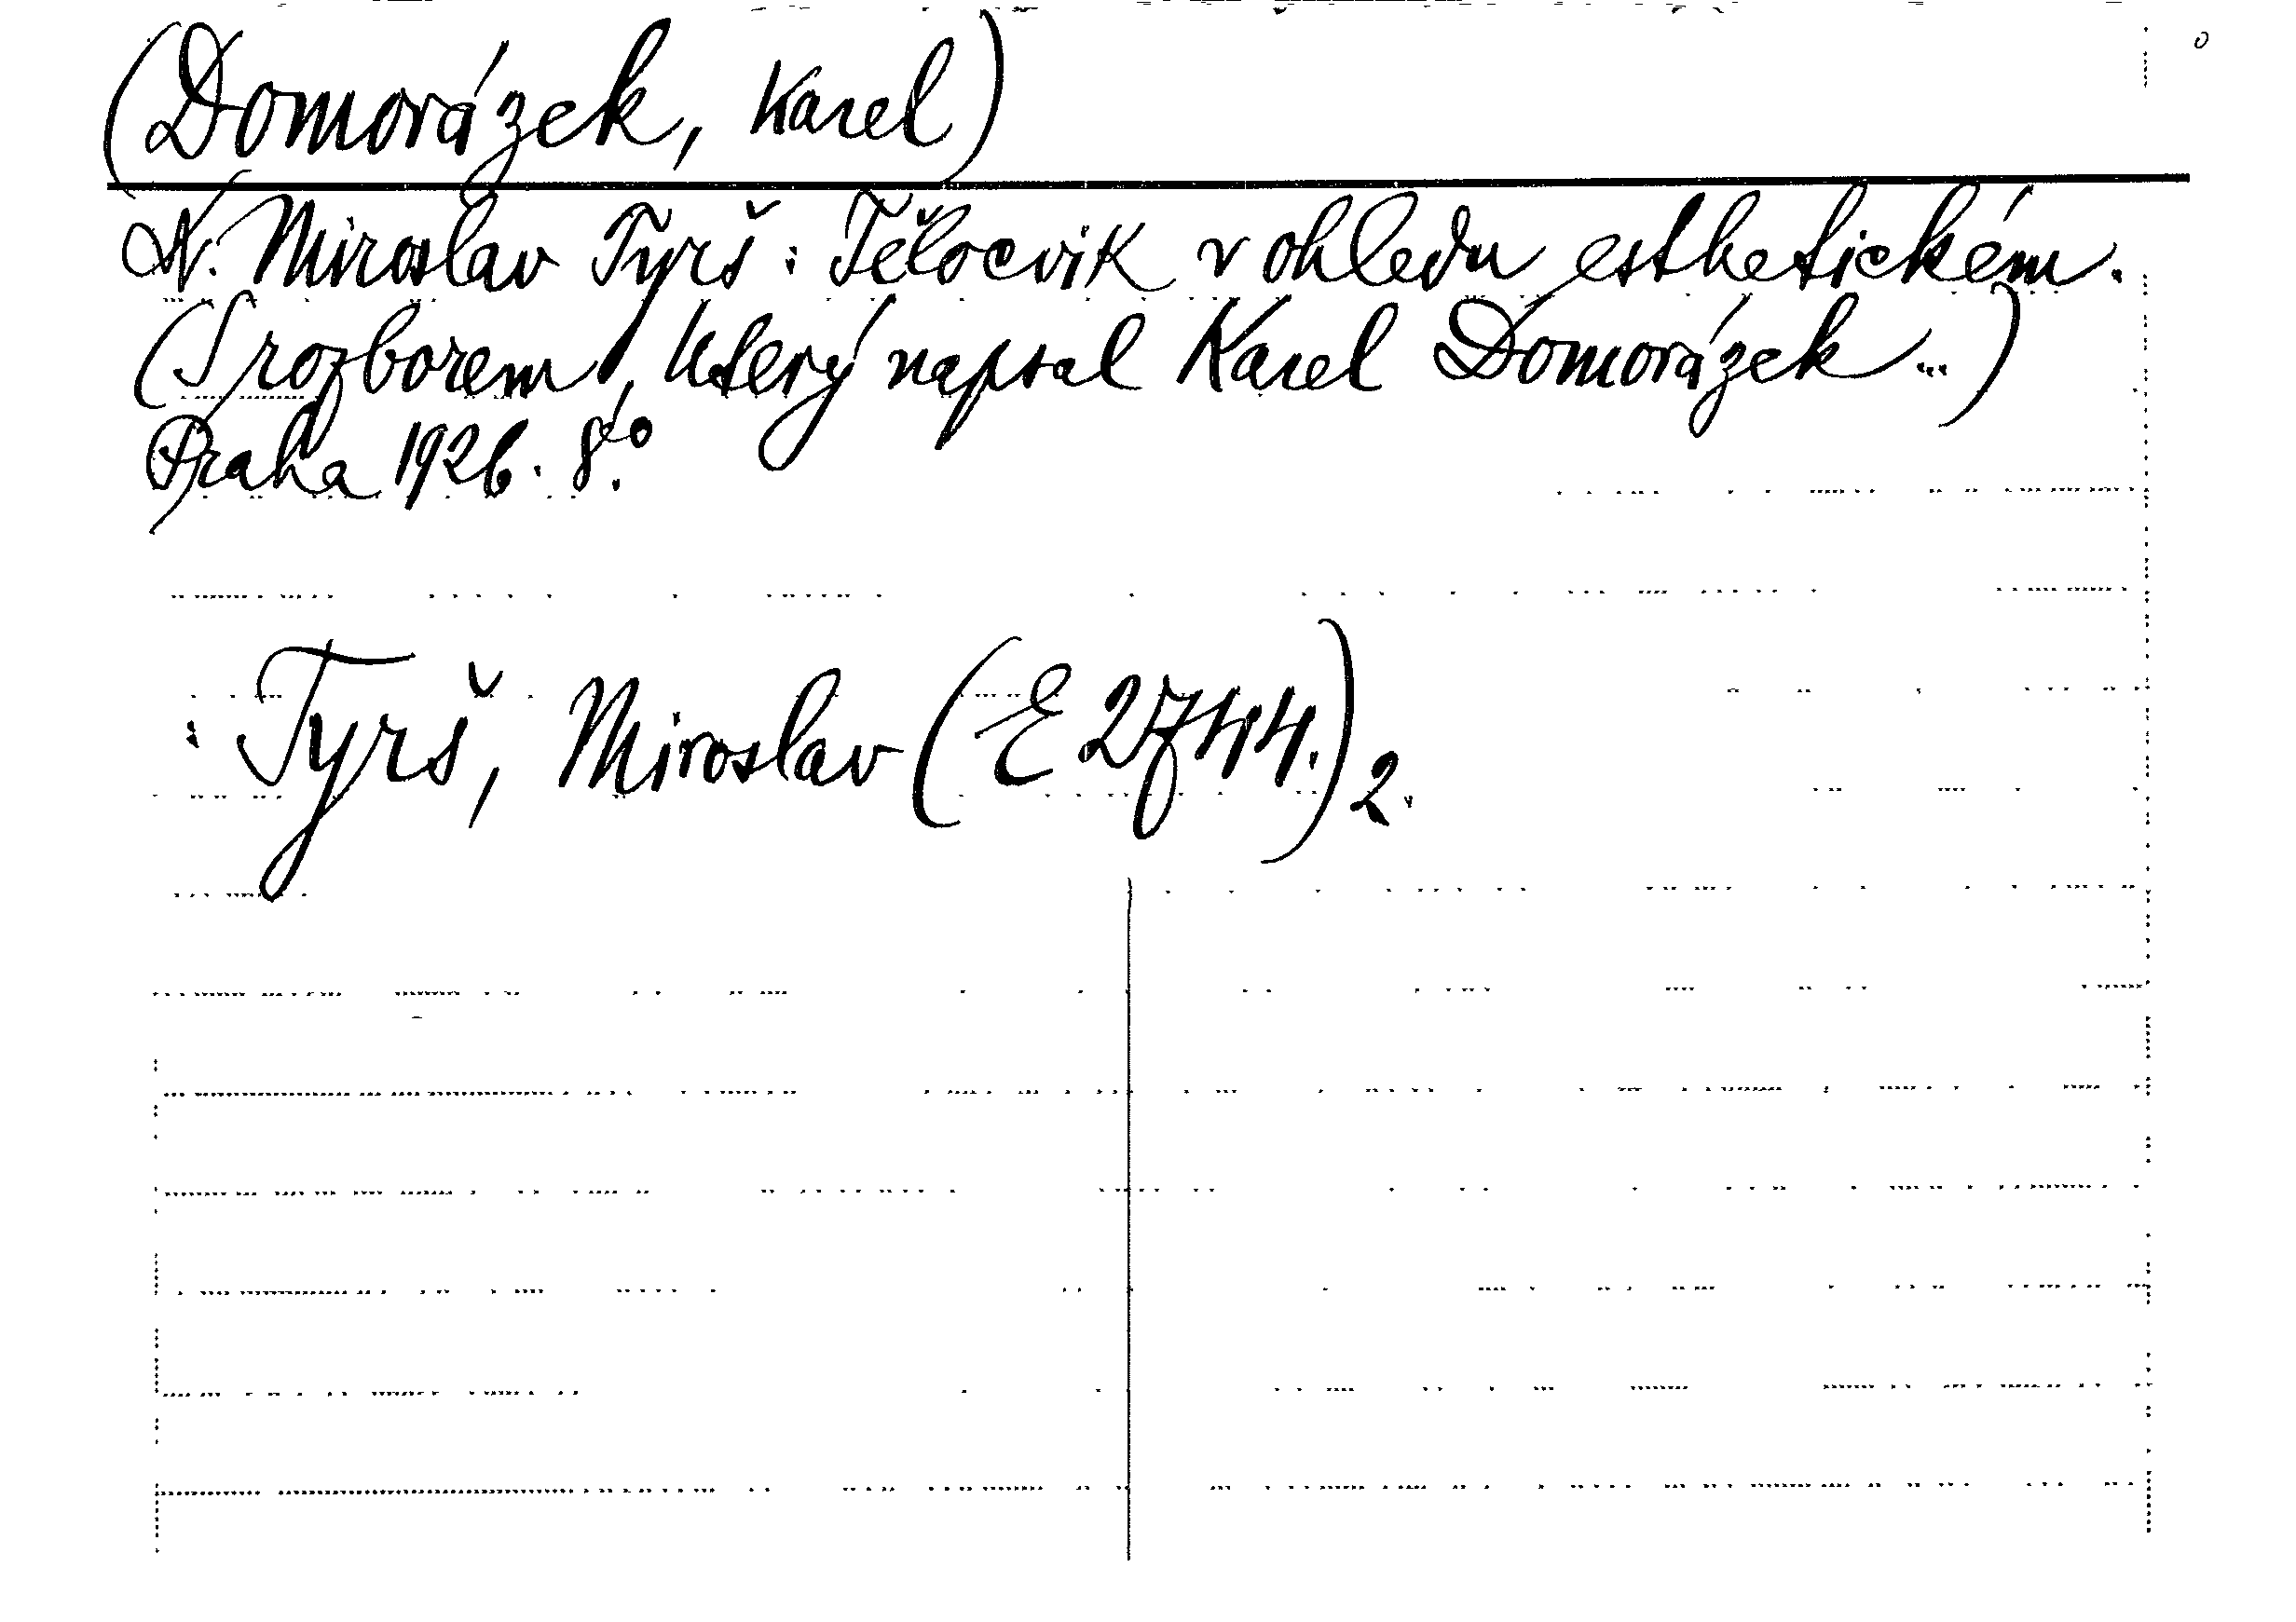 (Domorázek, Karel)
N. Miroslav Tyrš: Tělocvik v ohledu esthetickém.
(S rozborem, který napsal Karel Domorázek...)
Praha 1926. 8.°
: Tyrš, Miroslav (E 2744.) 2.